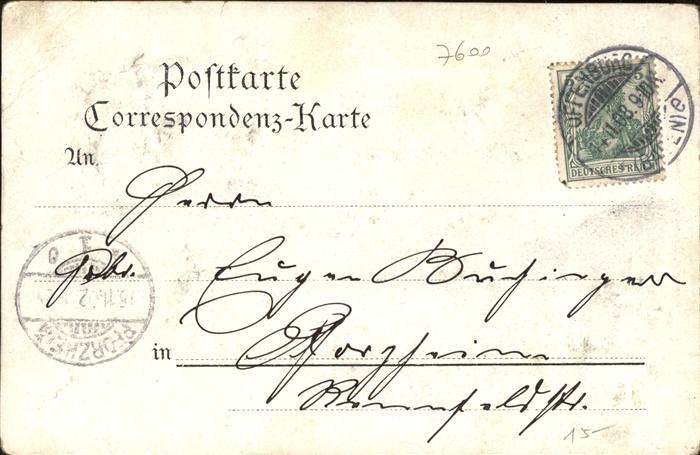 7600
Postkarte
Correspondenz-Karte
An
Herrn
Gebr. Eugen Buchinger
in Pforzheim
Rennfeldstr.
15-
OFFENBURG
DEUTSCHES REICH
PFORZHEIM